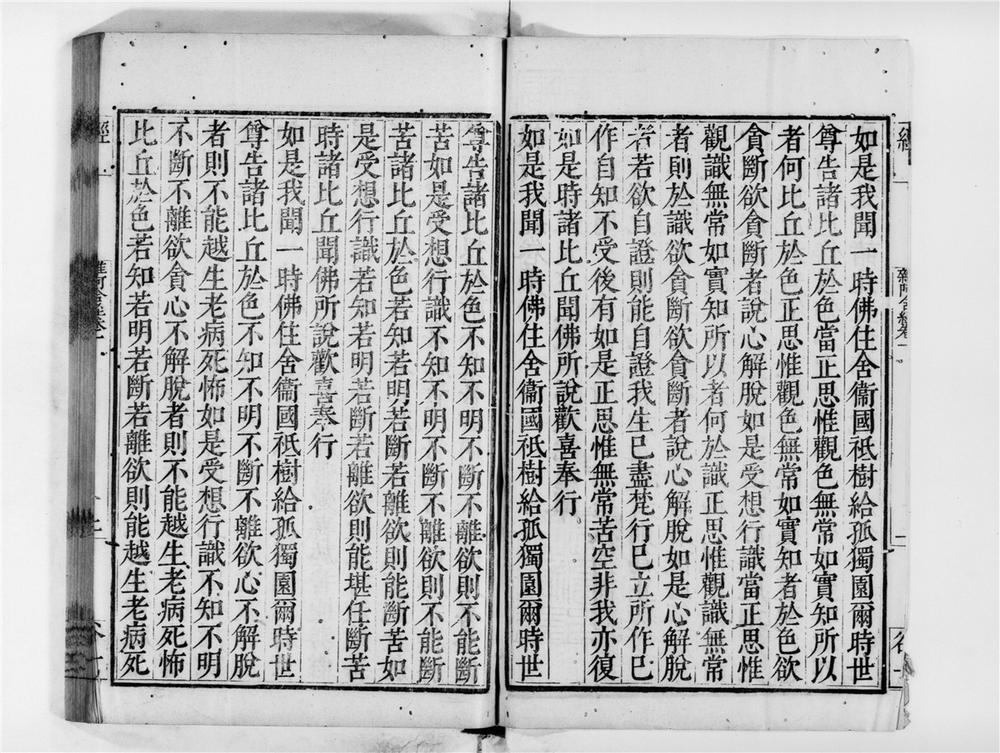 如是我聞一時佛住舍衞國祇樹給孤獨園爾時世
尊告諸比丘於色當正思惟觀色無常如實知所以
者何比丘於色正思惟觀色無常如實知者於色欲
貪斷欲貪斷者說心解脫如是受想行識當正思惟
觀識無常如實知所以者何於識正思惟觀識無常
者則於識欲貪斷欲貪斷者說心解脫如是心解脫
者若欲自證則能自證我生已盡梵行已立所作已
作自知不受後有如是正思惟無常苦空非我亦復
如是時諸比丘聞佛所說歡喜奉行
如是我聞一時佛住舍衞國祇樹給孤獨園爾時世
尊告諸比丘於色不知不明不斷不離欲則不能斷
苦如是受想行識不知不明不斷不離欲則不能斷
苦諸比丘於色若知若明若斷若離欲則能斷苦如
是受想行識若知若明若斷若離欲則能堪任斷苦
時諸比丘聞佛所說歡喜奉行
如是我聞一時佛住舍衞國祇樹給孤獨園爾時世
尊告諸比丘於色不知不明不斷不離欲心不解脫
者則不能越生老病死怖如是受想行識不知不明
不斷不離欲貪心不解脫者則不能越生老病死怖
比丘於色若知若明若斷若離欲則能越生老病死